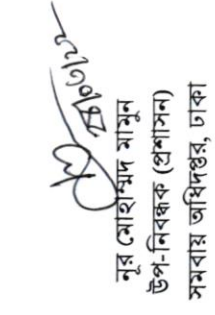 নূর মোহাম্মদ মামুন
উপ-নিবন্ধক (প্রশাসন)
সমবায় অধিদপ্তর, ঢাকা